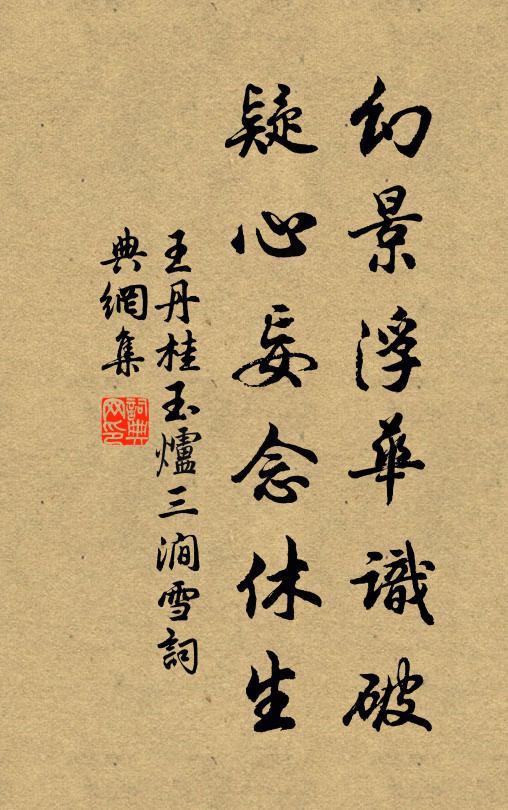 幻景浮華識破
疑心妄念休生
王丹桂玉爐三澗雪詞
典網集
詞典網印